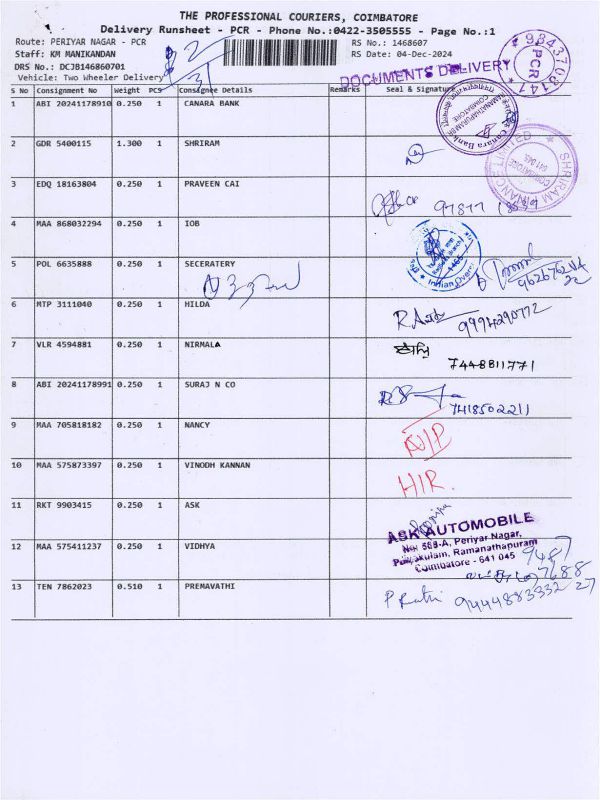 THE PROFESSIONAL COURIERS, COIMBATORE
Delivery Runsheet - PCR - Phone No.:0422-3505555 - Page No.:1
Route: PERIYAR NAGAR - PCR RS No.: 1468607
Staff: KM MANIKANDAN RS Date: 04-Dec-2024
DRS No.: DCJB146860701
Vehicle: Two Wheeler Delivery
DOCUMENTS DELIVERY
PCR
S No Consignment No Weight PCS Consignee Details Remarks Seal & Signature
1 ABI 20241178910 0.250 1 CANARA BANK
2 GDR 5400115 1.300 1 SHRIRAM
3 EDQ 18163804 0.250 1 PRAVEEN CAI
4 MAA 868032294 0.250 1 IOB
5 POL 6635888 0.250 1 SECERATERY
6 MTP 3111040 0.250 1 HILDA 9994290772
7 VLR 4594881 0.250 1 NIRMALA 7448811771
8 ABI 20241178991 0.250 1 SURAJ N CO 7418502211
9 MAA 705818182 0.250 1 NANCY
10 MAA 575873397 0.250 1 VINODH KANNAN HIR.
11 RKT 9903415 0.250 1 ASK
ASK AUTOMOBILE
No: 568-A, Periyar Nagar,
Puliyakulam, Ramanathapuram
Coimbatore - 641 045
12 MAA 575411237 0.250 1 VIDHYA
13 TEN 7862023 0.510 1 PREMAVATHI 9444883332